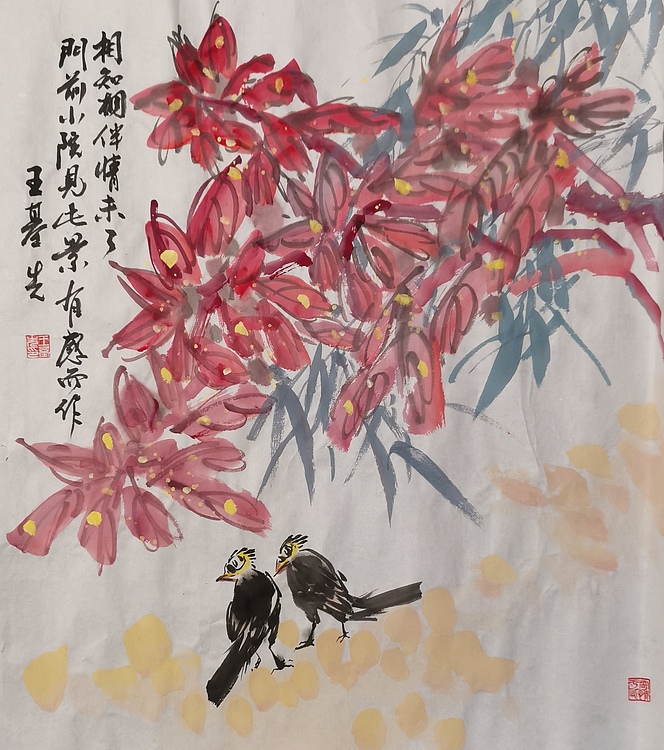 相知相伴情未了
门前小院见此景有感而作
王基先